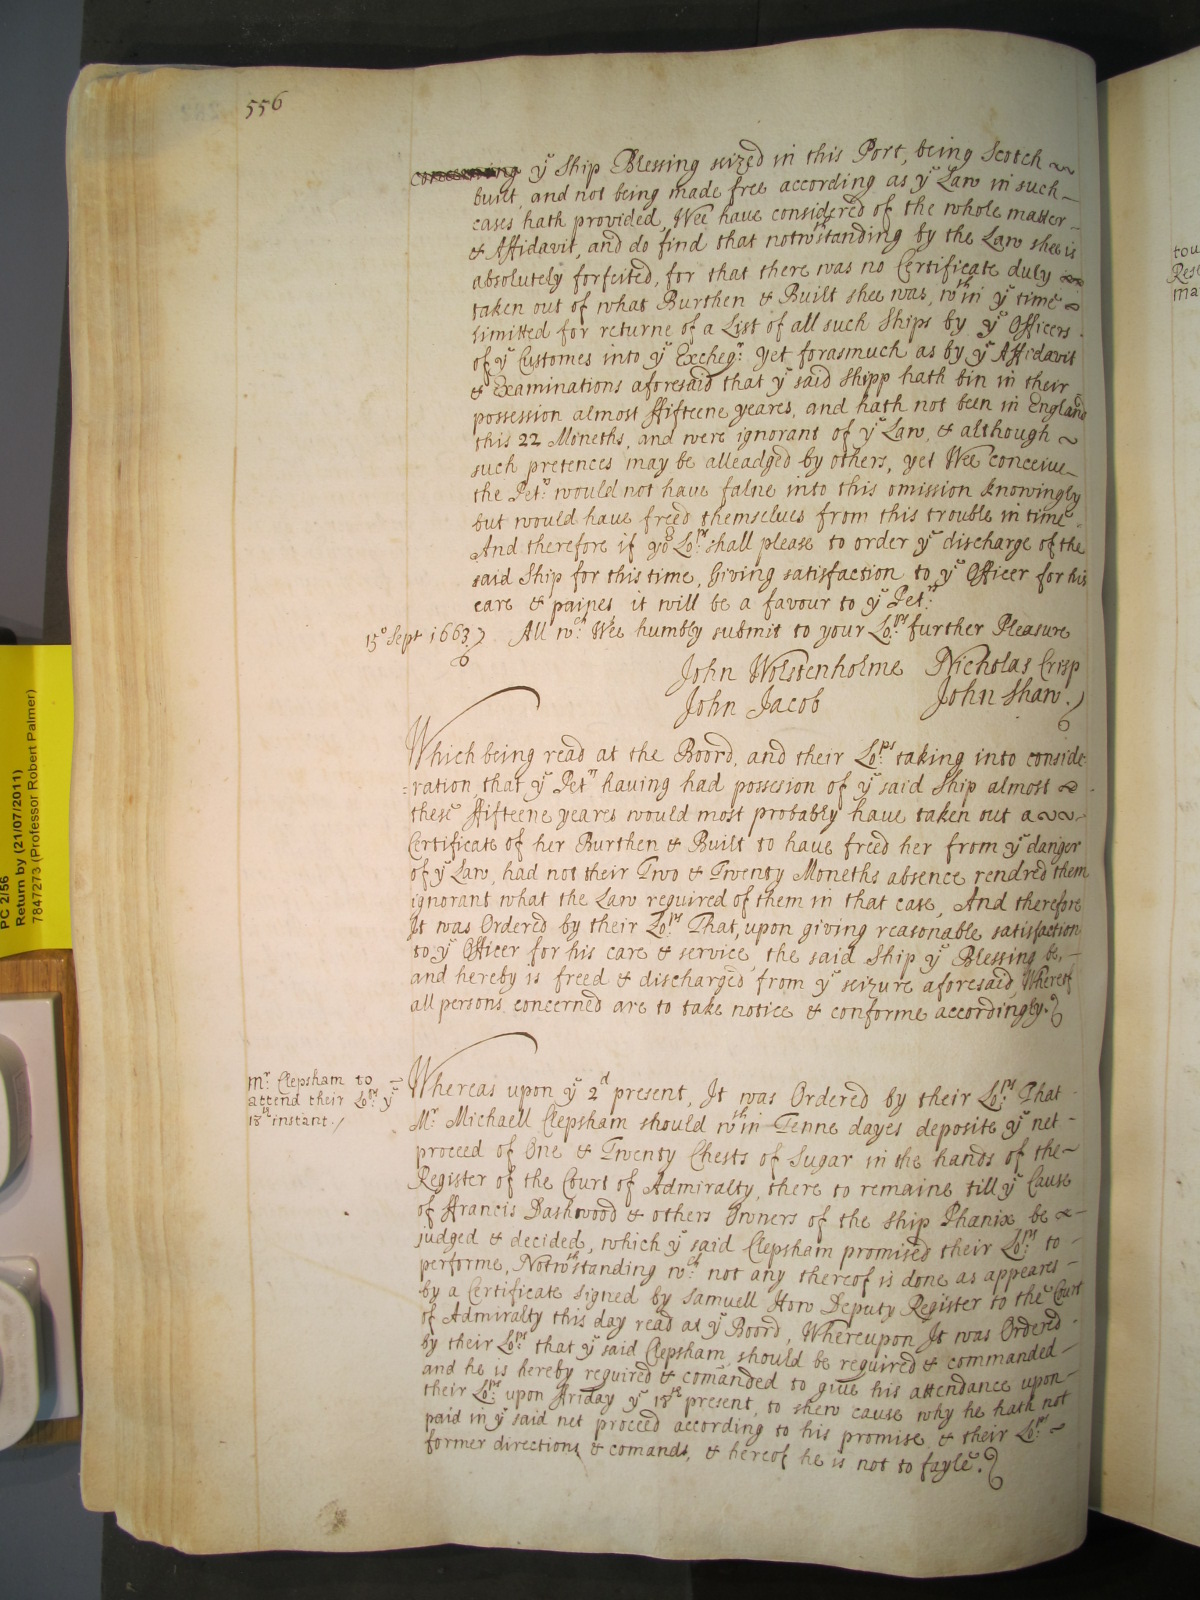 556
concerning yͤ Ship Blessing seized in this Port, being Scotch
built, and not being made free according as yͤ Law in such
cases hath provided, Wee have considered of the whole matter
& Affidavit, and do find that notwᵗʰstanding by the Law shee is
absolutely forfeited, for that there was no Certificate duly
taken out of what Burthen & Built shee was, wᵗʰin yͤ time
limitted for returne of a List of all such Ships by yͤ Officers
of yͤ Customes into yͤ Excheqʳ: yet forasmuch as by yͤ Affidavit
& Examinations aforesaid that yͤ said Shipp hath bin in their
possession almost ffifteene yeares, and hath not been in England
this 22 Moneths, and were ignorant of yͤ Law, & although
such pretences may be alleadged by others, yet Wee conceive
the Petʳˢ would not have falne into this omission knowingly
but would have freed themselves from this trouble in time
And therefore if yoʳ Loᵖᵖˢ shall please to order yͤ discharge of the
said Ship for this time, Giving satisfaction to yͤ Officer for his
care & paines it will be a favour to yͤ Petʳˢ:
15º Sept 1663. All wᶜʰ: Wee humbly submit to your Loᵖᵖˢ: further Pleasure
John Wolstenholme Nicholas Crisp
John Jacob John Shaw.
Which being read at the Boord, and their Loᵖᵖˢ: taking into conside
=ration, that yͤ Petʳˢ having had possesion of yͤ said Ship almost
these ffifteene yeares would most probably have taken out a
Certificate of her Burthen & Built to have freed her from yͤ danger
of yͤ Law, had not their Two & Twenty Moneths absence rendred them
ignorant what the Law required of them in that case, And therefore
It was Ordered by their Loᵖᵖˢ: That, upon giving reasonable satisfaction
to yͤ Officer for his care & service, the said Ship yͤ Blessing be,
and hereby is freed & discharged from yͤ seizure aforesaid, Whereof
all persons concerned are to take notice & conforme accordingly.
mʳ. Clepsham to
attend their Loᵖᵖˢ: yͤ
18ᵗʰ instant./
Whereas upon yͤ 2ᵈ present, It was Ordered by their Loᵖᵖˢ: That
Mʳ: Michaell Clepsham should wᵗʰin Tenne dayes deposite yͤ net
proceed of One & Twenty Chests of Sugar in the hands of the
Register of the Court of Admiralty, there to remaine till yͤ Cause
of ffrancis Dashwood & others Owners of the Ship Phœnix be
judged & decided, which yͤ said Clepsham promised their Loᵖᵖˢ: to
performe, Notwᵗʰstanding wᶜʰ: not any thereof is done as appeares
by a Certificate signed by Samuell How Deputy Register to the Court
of Admiralty this day read at yͤ Boord, Whereupon It was Ordered
by their Loᵖᵖˢ: that yͤ said Clepsham, should be required & commanded
and he is hereby required & comanded to give his attendance upon
their Loᵖᵖˢ: upon ffriday yͤ 18ᵗʰ present, to shew cause why he hath not
paid in yͤ said net proceed according to his promise & their Loᵖᵖˢ:
former directions & comands, & hereof he is not to fayle.
PC 2/56
Return by (21/07/2011)
7847273 (Professor Robert Palmer)
tou
Rese
ma